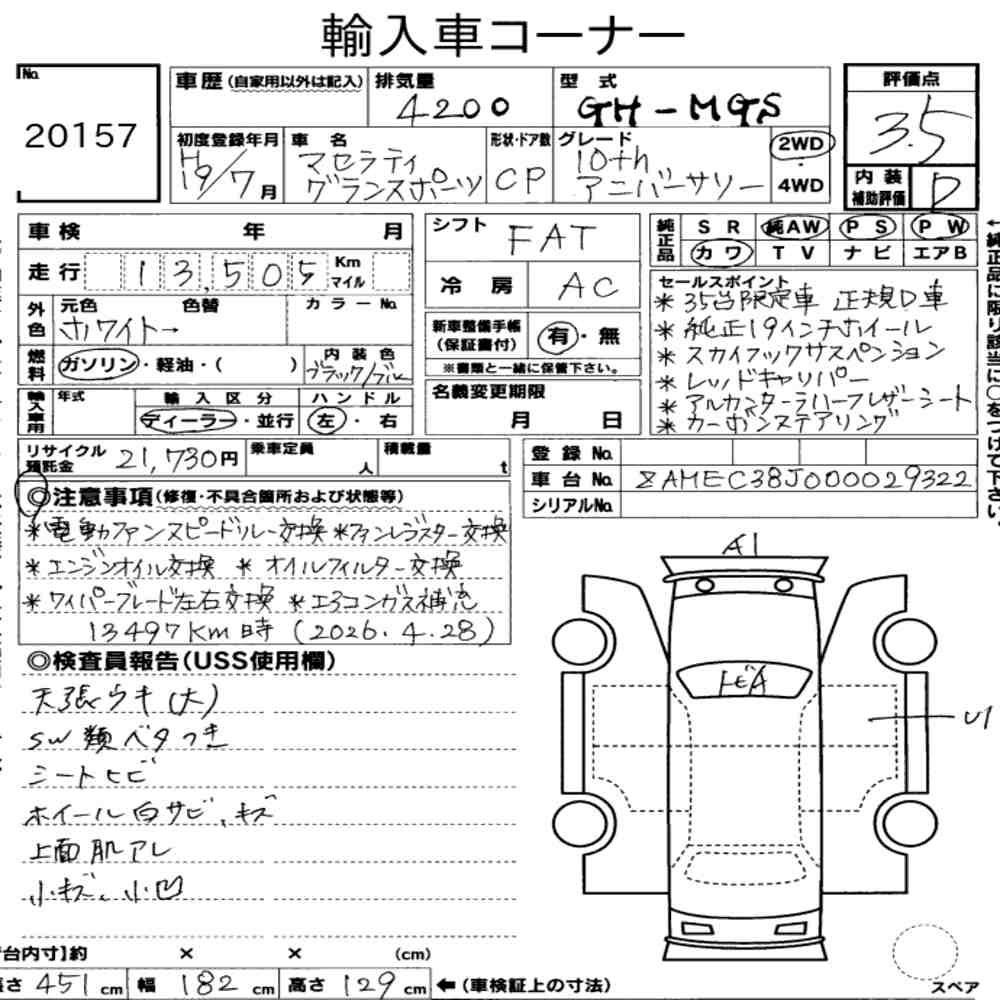 輸入車コーナー
No. 20157
車歴(自家用以外は記入) 排気量 4200 型式 GH-MGS
評価点 3.5
初度登録年月 H19/7月 車名 マセラティ グランスポーツ 形状・ドア数 CP グレード 10th アニバーサリー 2WD・4WD
内装補助評価 D
車検 年 月
シフト FAT
純正品 SR 純AW PS PW
カワ TV ナビ エアB
走行 13,505 Km マイル
冷房 AC
セールスポイント
*35台限定車 正規D車
*純正19インチホイール
*スカイフックサスペンション
*レッドキャリパー
*アルカンターラハーフレザーシート
*カーボンステアリング
←純正品に限り該当に○をつけて下さい。
外色 元色 ホワイト→ 色替 カラーNo.
新車整備手帳(保証書付) 有・無
※書類と一緒に保管下さい。
燃料 ガソリン・軽油・( ) 内装色 ブラック/ブルー
名義変更期限 月 日
輸入車用 年式 輸入区分 ディーラー・並行 ハンドル 左・右
リサイクル預託金 21,730円 乗車定員 人 積載量 t
登録No.
車台No. ZAMEC38J000029322
シリアルNo.
◎注意事項(修復・不具合箇所および状態等)
*電動ファンスピードリレー交換 *ファンレジスター交換
*エンジンオイル交換 *オイルフィルター交換
*ワイパーブレード左右交換 *エアコンガス補充
13497Km時 (2026.4.28)
◎検査員報告(USS使用欄)
天張ウキ(大)
SW類ベタつき
シートヒビ
ホイール白サビ、キズ
上面肌アレ
小キズ、小凹
A1
トビA
U1
台内寸】約 × × (cm)
長さ 451 cm 幅 182 cm 高さ 129 cm ←(車検証上の寸法)
スペア